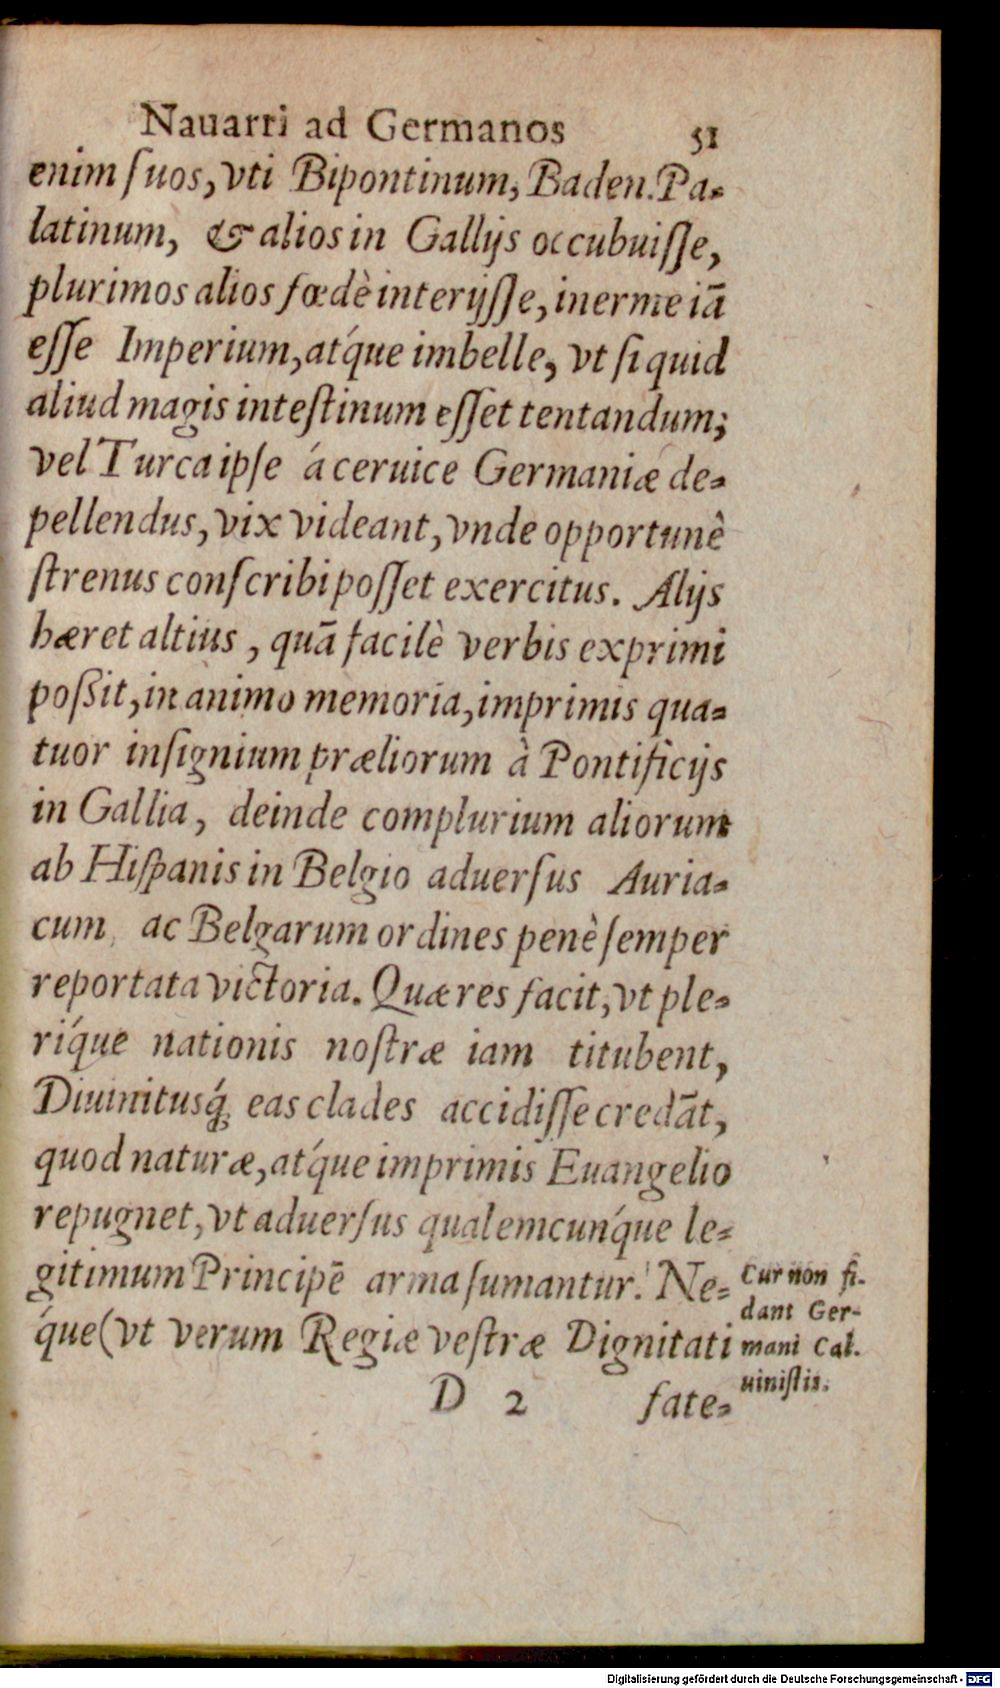 Nauarri ad Germanos 51
enim ſuos, vti Bipontinum, Baden. Pa-
latinum, & alios in Gallijs occubuiſſe,
plurimos alios fœdè interijſſe, inerme iā
eſſe Imperium, atq́ue imbelle, vt ſi quid
aliud magis inteſtinum eſſet tentandum;
vel Turca ipſe á ceruice Germaniæ de-
pellendus, vix videant, vnde opportunè
ſtrenus conſcribi poſſet exercitus. Alijs
hæret altius, quā facilè verbis exprimi
poßit, in animo memoria, imprimis qua-
tuor inſignium præliorum à Pontificijs
in Gallia, deinde complurium aliorum
ab Hiſpanis in Belgio aduerſus Auria-
cum, ac Belgarum ordines penè ſemper
reportata victoria. Quæ res facit, vt ple-
riq́ue nationis noſtræ iam titubent,
Diuinitusq́; eas clades accidiſſe credāt,
quod naturæ, atq́ue imprimis Euangelio
repugnet, vt aduerſus qualemcunq́ue le-
gitimum Principē arma ſumantur. Ne-
q́ue (vt verum Regiæ veſtræ Dignitati
D 2 fate-
Cur non fi-
dant Ger-
mani Cal-
uiniſtis.
Digitalisierung gefördert durch die Deutsche Forschungsgemeinschaft - DFG